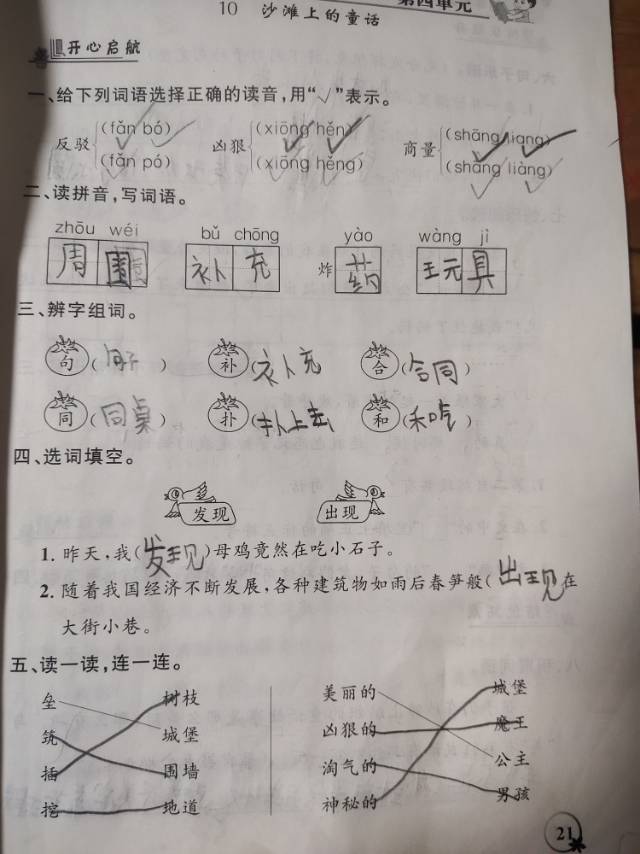 第四单元
10 沙滩上的童话
开心启航
一、给下列词语选择正确的读音,用“√”表示。
反驳 (fǎn bó) √ (fǎn pó) 凶狠 (xiōng hěn) √ (xiōng hěng) 商量 (shāng liang) √ (shāng liàng)
二、读拼音,写词语。
zhōu wéi bǔ chōng yào wàng jì
周围 补充 炸药 玩具
三、辨字组词。
句( ) 补(补充) 合(合同)
同(同桌) 扑(扑上去) 和(和吃)
四、选词填空。
发现 出现
1. 昨天,我(发现)母鸡竟然在吃小石子。
2. 随着我国经济不断发展,各种建筑物如雨后春笋般(出现在
大街小巷。
五、读一读,连一连。
垒 树枝 美丽的 城堡
筑 城堡 凶狠的 魔王
插 围墙 淘气的 公主
挖 地道 神秘的 男孩
21